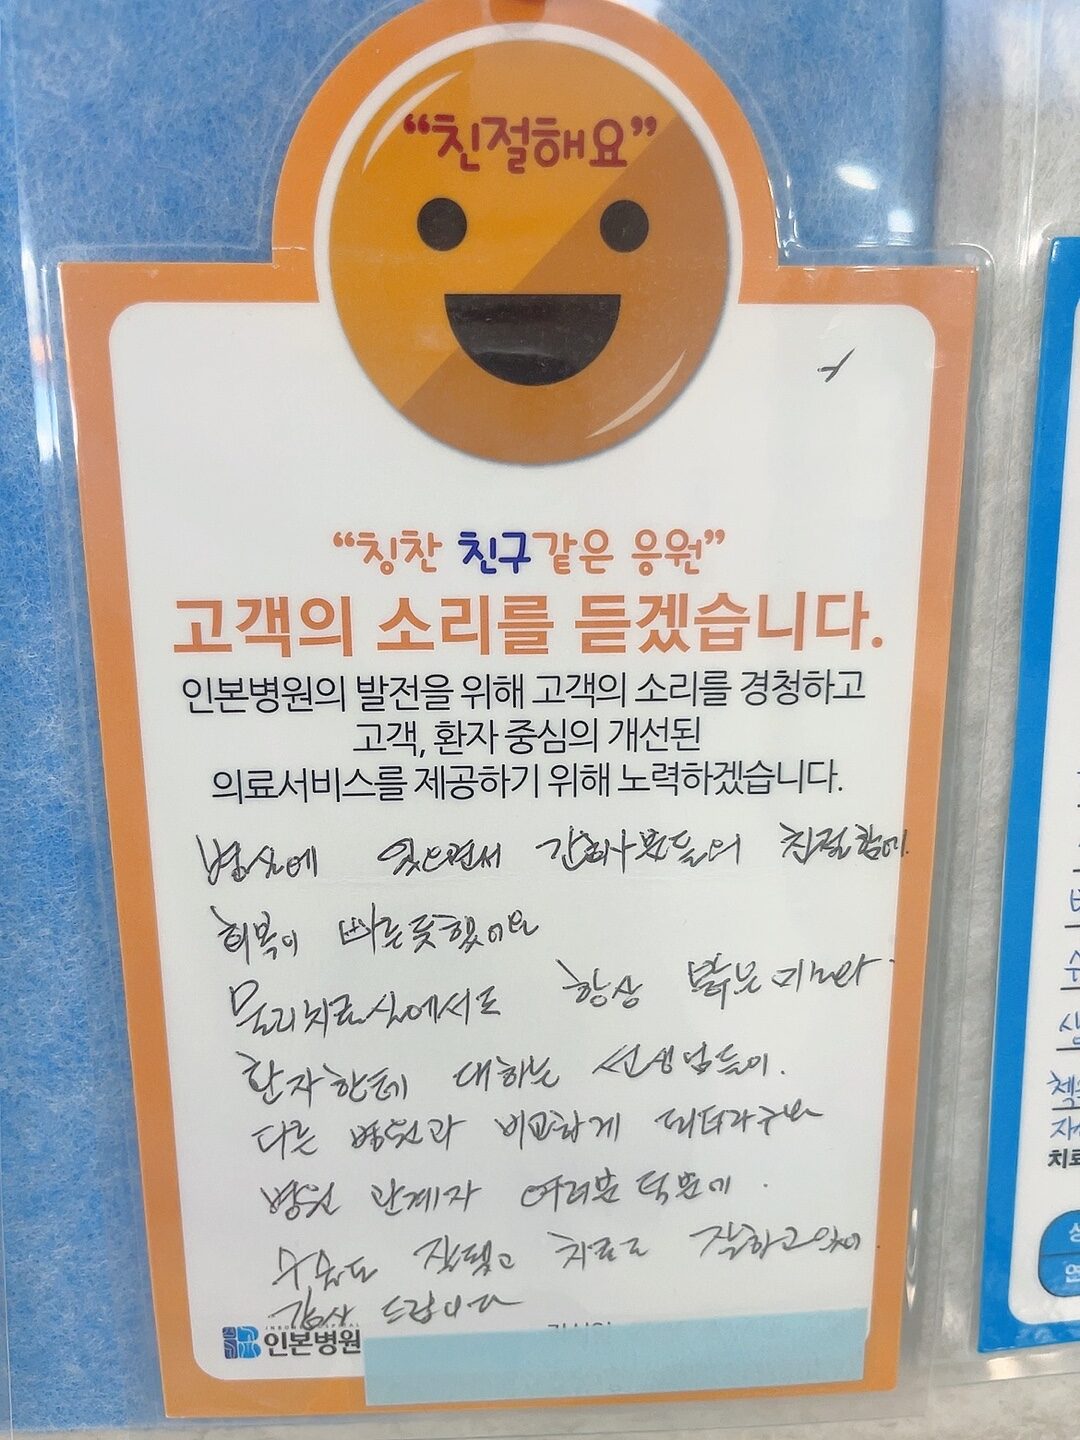 “친절해요”
“칭찬 친구같은 응원”
고객의 소리를 듣겠습니다.
인본병원의 발전을 위해 고객의 소리를 경청하고
고객, 환자 중심의 개선된
의료서비스를 제공하기 위해 노력하겠습니다.
병실에 있으면서 간호사분들의 친절함에.
회복이 빠른듯했어요
물리치료실에서도 항상 밝은 미소와
환자한테 대하는 선생님들이.
다른 병원과 비교할게
병원 관계자 여러분 덕분에.
수술도 잘됐고 치료도 잘하고있어
감사 드립니다
인본병원
치료